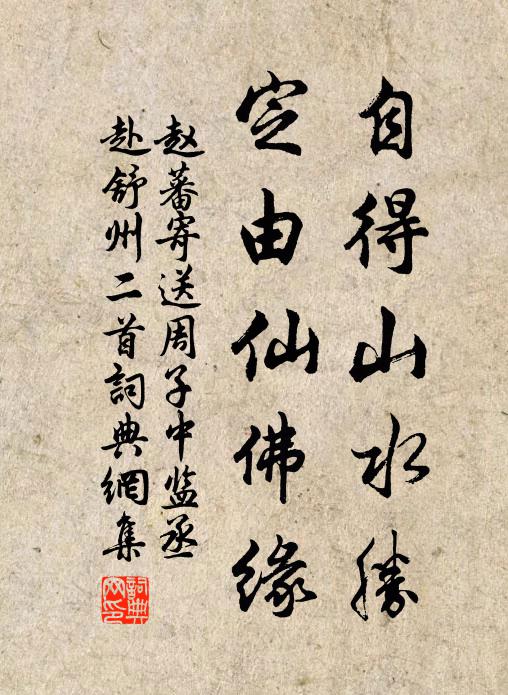 自得山水勝
定由仙佛緣
赵蕃寄送周子中监丞
赴舒州二首詞典網集
詞典網印